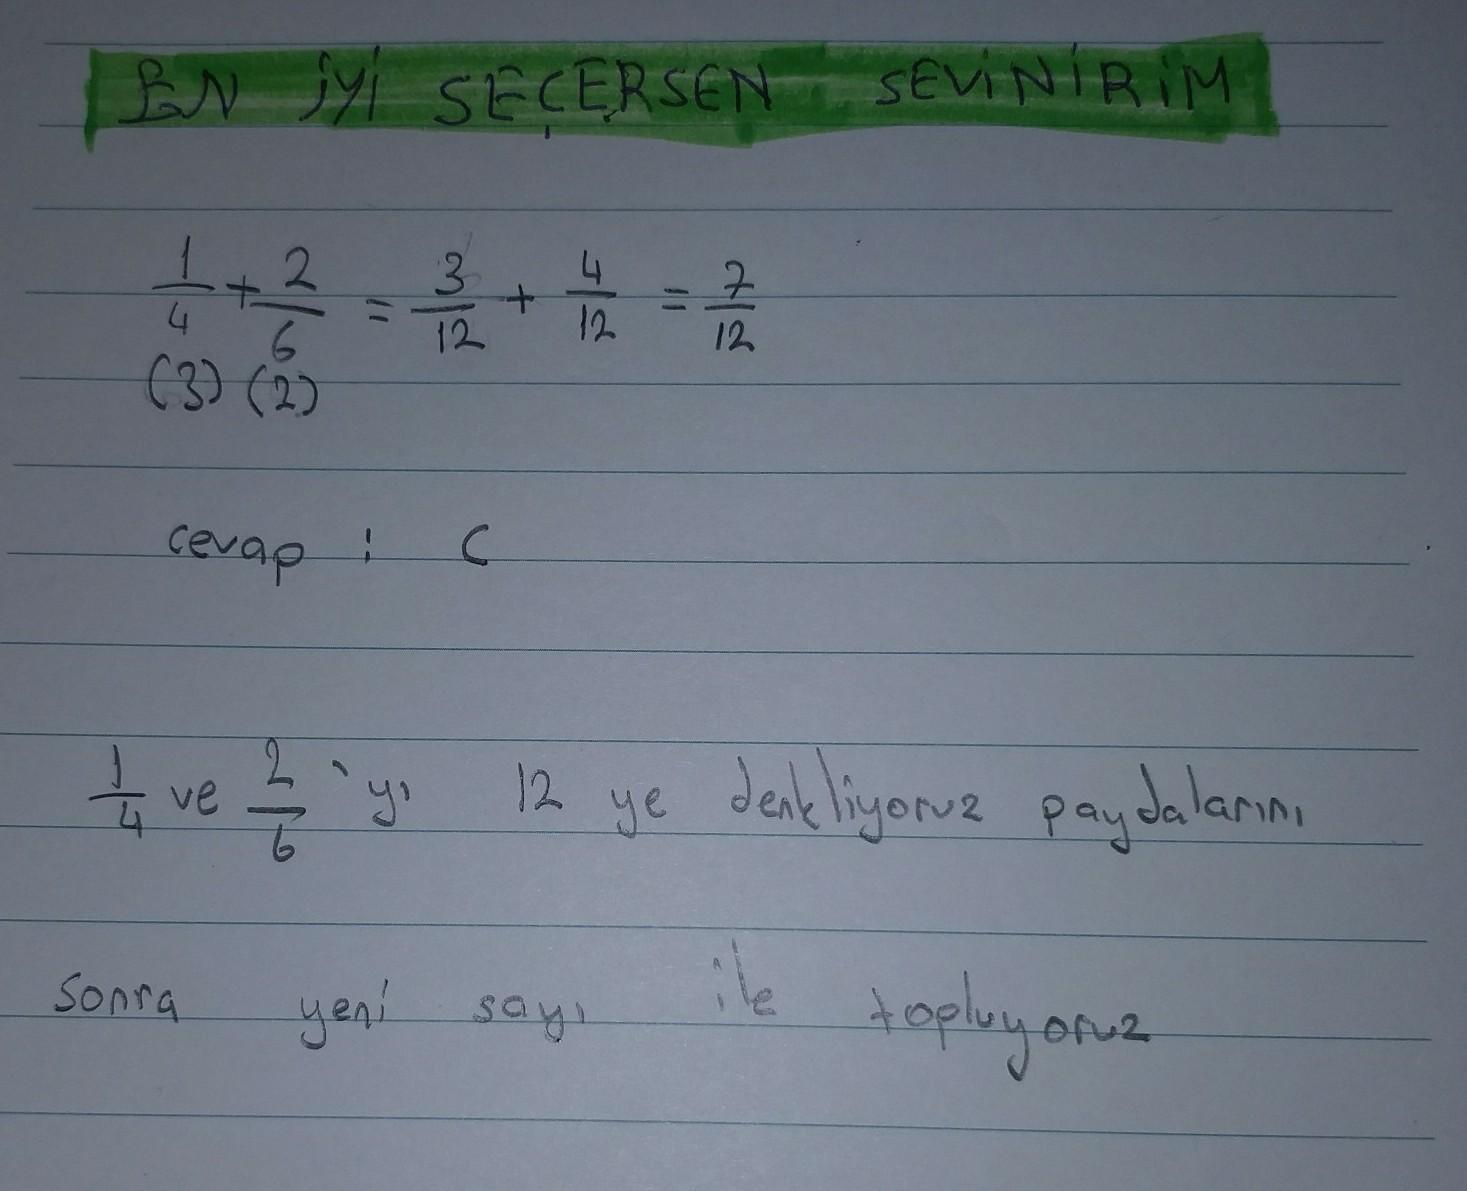 EN İYİ SEÇERSEN SEVİNİRİM
1/4 + 2/6 = 3/12 + 4/12 = 7/12
(3) (2)
cevap : C
1/4 ve 2/6 'yı 12 ye denkliyoruz paydalarını
sonra yeni sayı ile topluyoruz